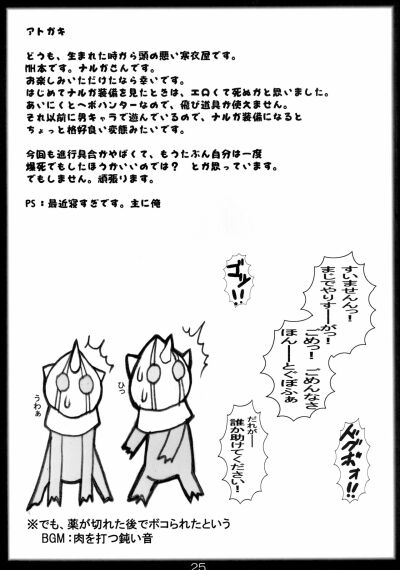 アトガキ
どうも、生まれた時から頭の悪い寒衣屋です。
MH本です。ナルガさんです。
お楽しみいただけたなら幸いです。
はじめてナルガ装備を見たときは、エロくて死ぬかと思いました。
あいにくとヘボハンターなので、飛び道具か使えません。
それ以前に男キャラで遊んでいるので、ナルガ装備になると
ちょっと格好良い変態みたいです。
今回も進行具合かやばくて、もうたぶん自分は一度
爆死でもしたほうかいいのでは？ とか思っています。
でもしません。頑張ります。
PS：最近寝すぎです。主に俺
すいませんんっ！
まじでやりすーーがっ！
ごめっ！ ごめんなさ
ほんーーとぐぼふぁ
ゴッ!!
だれがー
誰か助けてください！
ドグボォ!!
ひっ
うわぁ
※でも、薬が切れた後でボコられたという
BGM：肉を打つ鈍い音
25